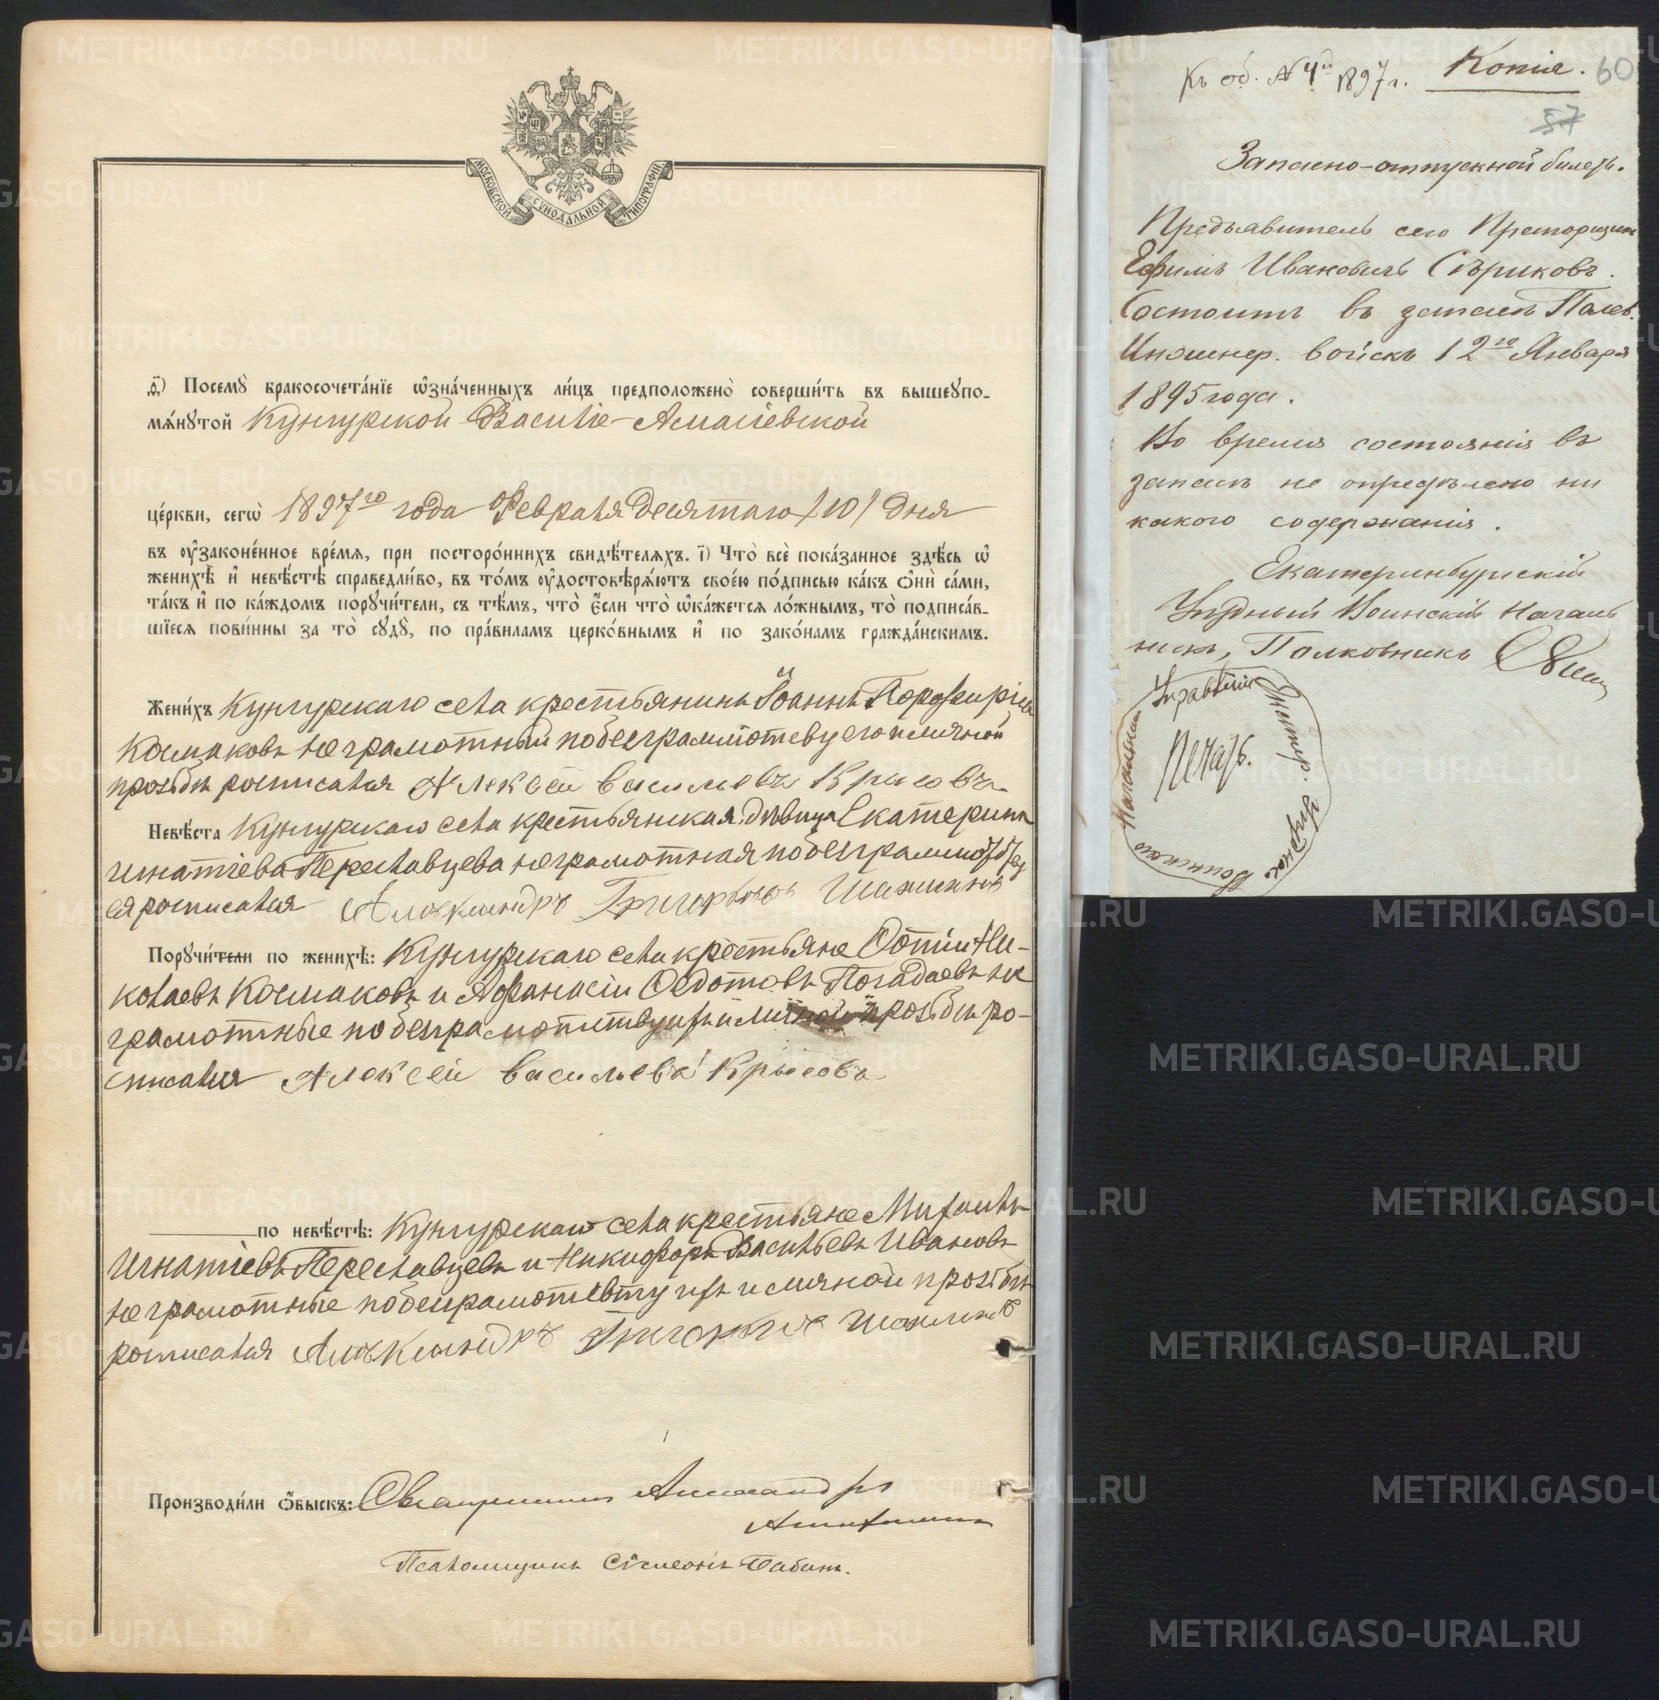 МОСКОВСКОЙ СѴНОДАЛЬНОЙ ТИПОГРАФІИ
ѳ҃) Посемꙋ̀ бракосочета́нїе ѡ҆зна́ченныхъ ли́цъ предположено̀ соверши́ть въ вышеꙋпо-
мѧ́нꙋтой Кунгурской Василіе-Амасіевской
це́ркви, сегѡ̀ 1897го года Февраля десятаго /10/ дня
въ ᲂу҆законе́нное вре́мѧ, при посторо́ннихъ свидѣ́телѧхъ. і҃) Что̀ всѐ пока́занное здѣ́сь ѡ҆
женихѣ̀ и҆ невѣ́стѣ справедли́во, въ то́мъ ᲂу҆достовѣрѧ́ютъ свое́ю по́дписью ка́къ ѻ҆нѝ са́ми,
та́къ и҆ по ка́ждомъ порꙋчи́тели, съ тѣ́мъ, что̀ є҆́сли что̀ ѡ҆ка́жетсѧ ло́жнымъ, то̀ подписа́в-
шїесѧ пови́нны за то̀ сꙋдꙋ̀, по пра́виламъ церко́внымъ и҆ по зако́намъ гражда́нскимъ.
Жени́хъ Кунгурскаго села крестьянинъ Іоаннъ Порфиріевъ
Космаковъ неграмотный по безграмотству его и личной
прозьбѣ росписался Алексѣй Васильевъ Крысовъ
Невѣ́ста Кунгурскаго села крестьянская дѣвица Екатерина
Игнатіева Переславцева неграмотная по безграмот
ея росписался Александръ Григорьевъ
Порꙋчи́тели по женихѣ̀: Кунгурскаго села крестьяне Фотій Ни-
колаевъ Космаковъ и Афанасій Федотовъ Погадаевъ не
грамотные по безграмотству ихъ и личной прозьбѣ ро-
списался Алексѣй Васильевъ Крысовъ
по невѣ́стѣ: Кунгурскаго села крестьяне Михаилъ
Игнатіевъ Переславцевъ и Никифоръ Васильевъ Ивановъ
неграмотные по безграмотству ихъ и личной прозьбѣ
росписался Александръ Григорьевъ
Производи́ли ѻ҆́быскъ: Священникъ Александръ
Псаломщикъ Сѵмеонъ Бабинъ.
Къ об. № 4й 1897 г. Копія. 60
57
Запасно-отпускной билетъ.
Предъявитель сего
Ефимъ Ивановичъ Сѣриковъ.
Состоитъ въ запасѣ Полев.
Инженер. войскъ 12го Января
1895 года.
Во время состоянія въ
запасѣ не опредѣлено ни
какого содержанія.
Екатеринбургскій
Уѣздный Воинскій Началь
никъ, Полковникъ
Управленіе Екатеринбург. Уѣзднаго Воинскаго Начальника
Печать.
METRIKI.GASO-URAL.RU